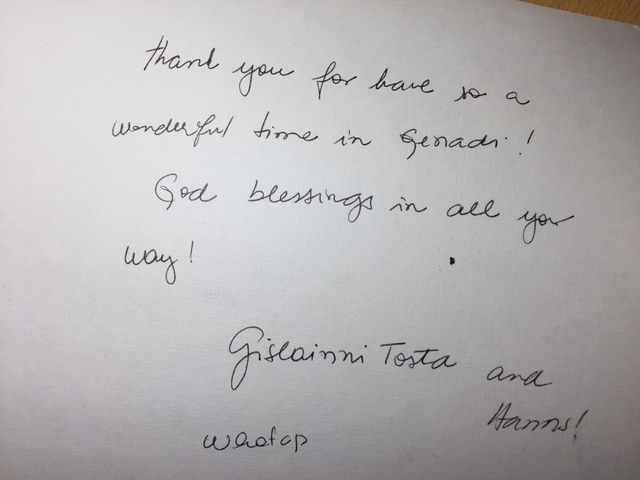 Thank you for have so a
wonderful time in Genadi!
God blessings in all your
way!
Gislainni Tosta and
Hanns!
Whatap